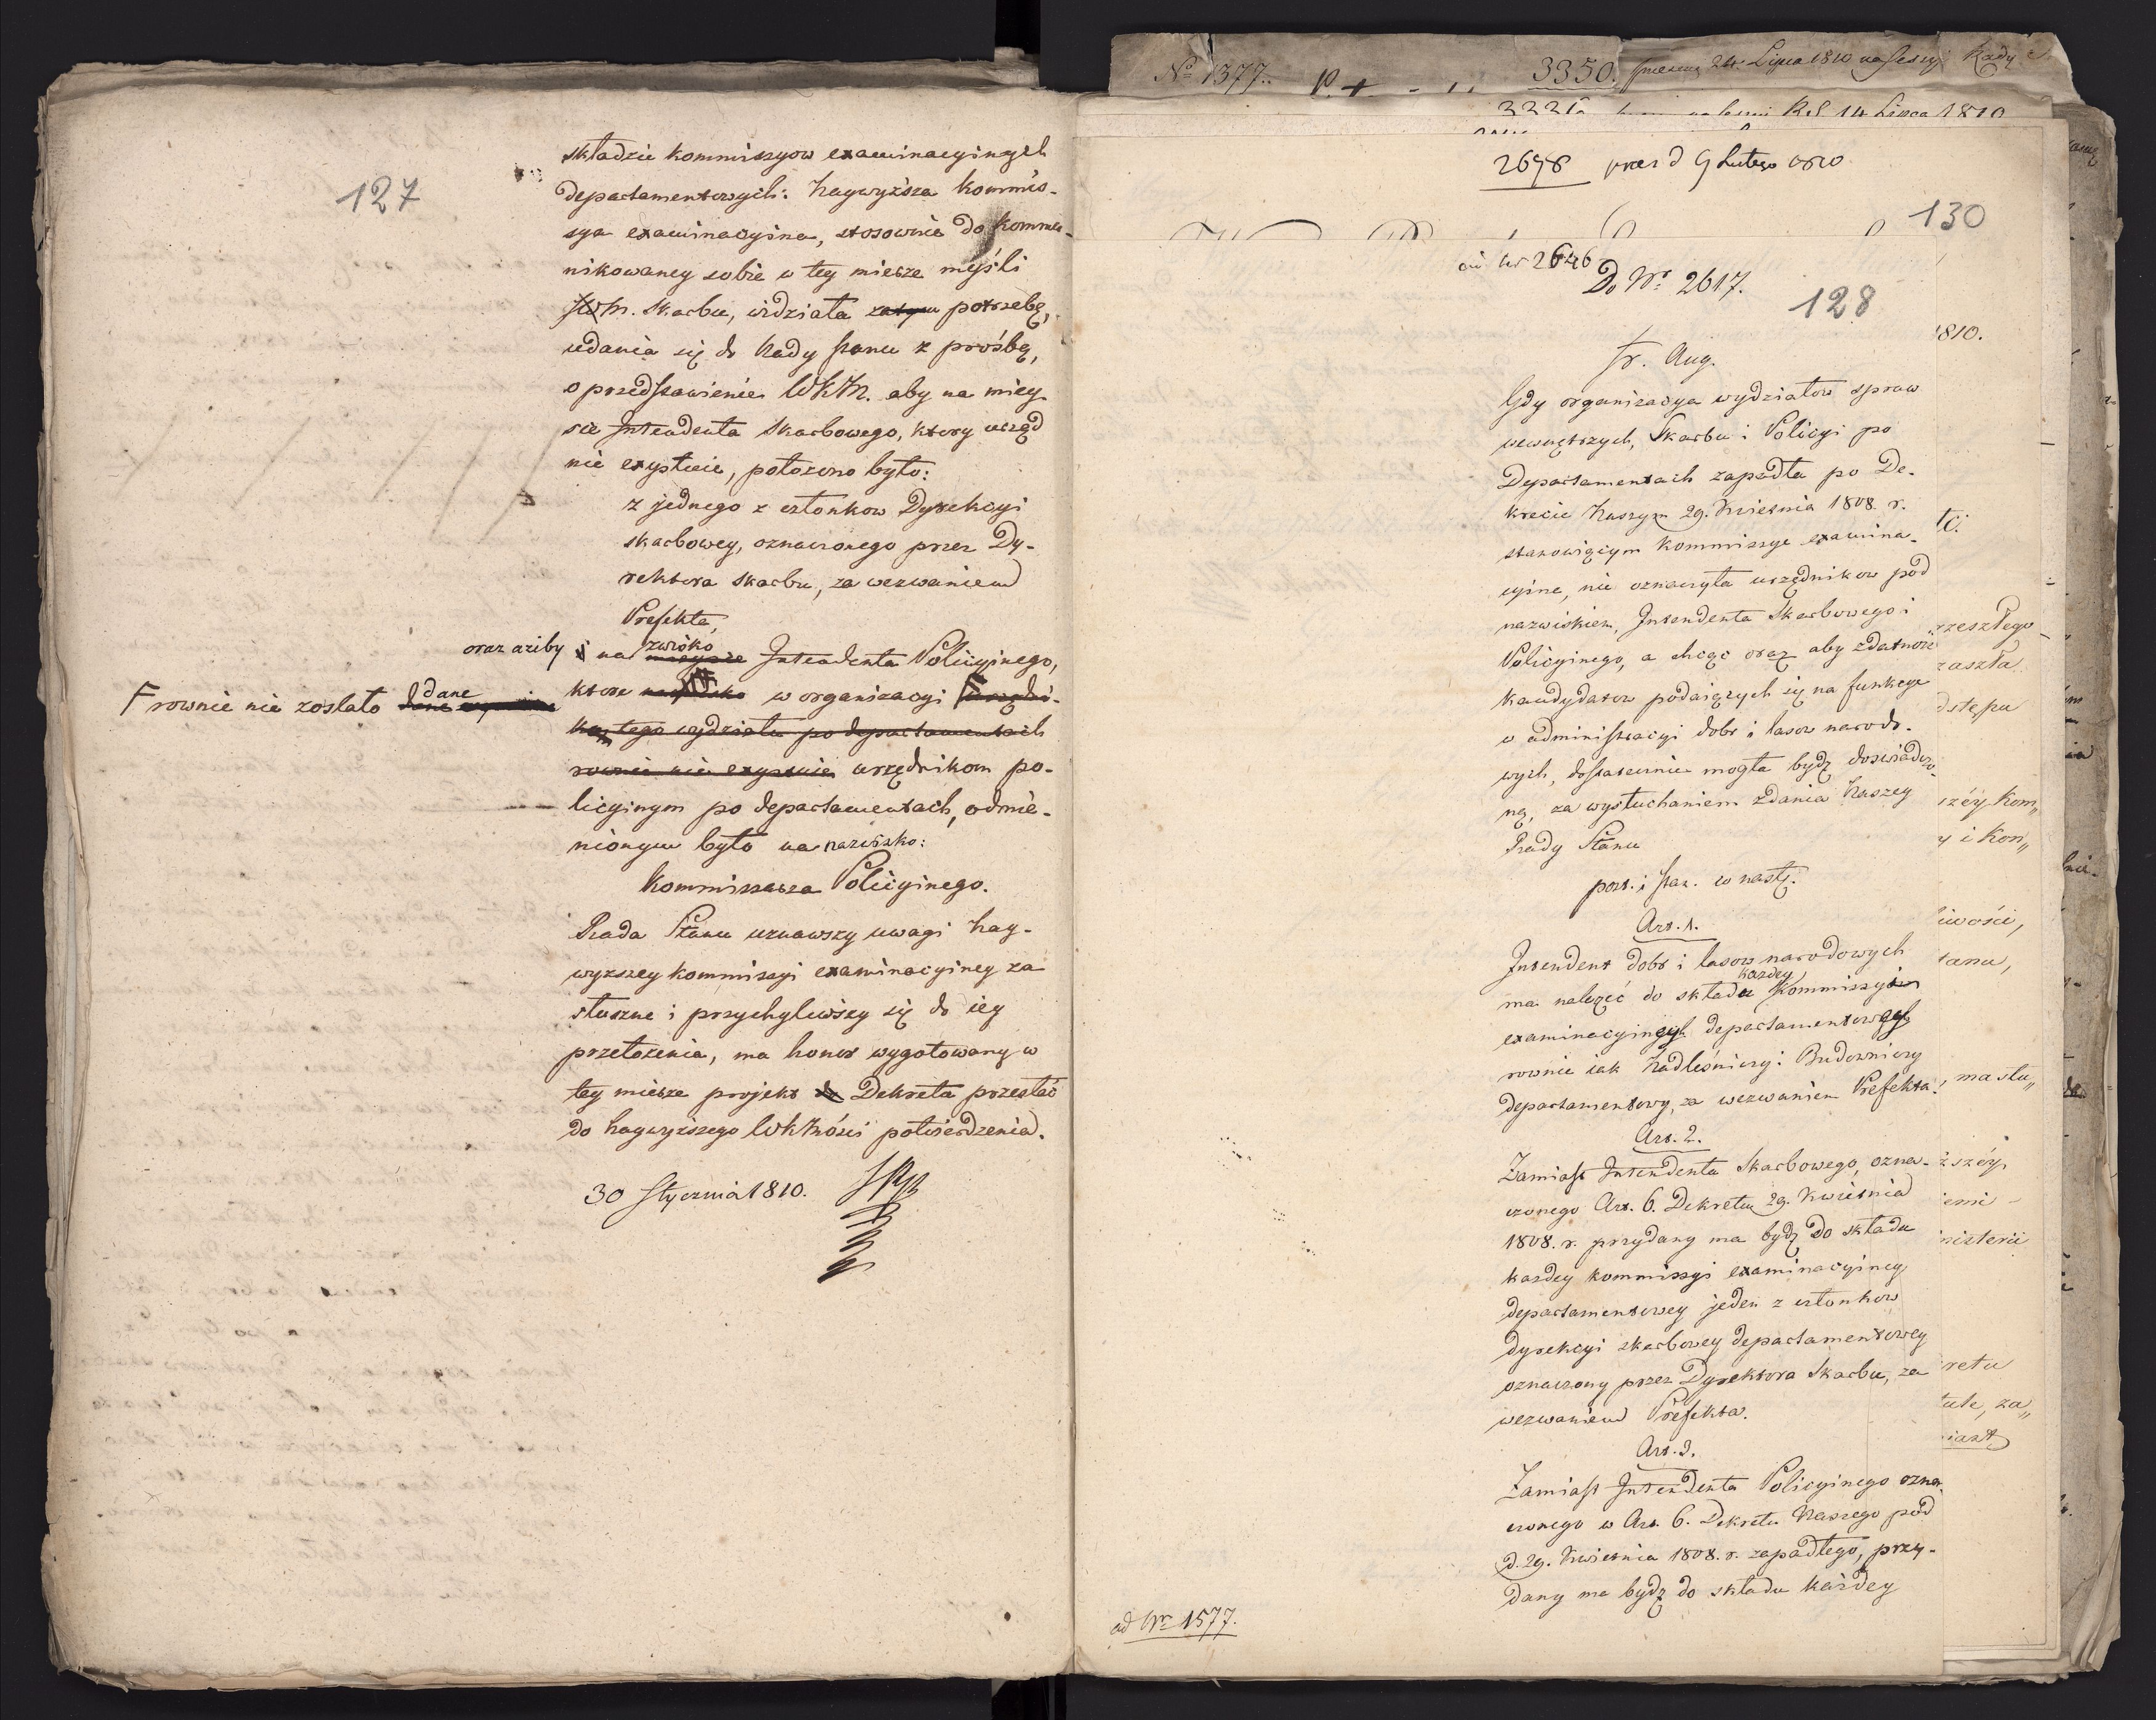 127
składzie kommissyow examinacyinych
departamentowych: Naywyższa Kommis-
sya examinacyina, stosownie do kommu-
nikowaney sobie w tey mierze myśli
JWM. Skarbu, widziała zatym potrzebę,
udania się do Rady Stanu z prośbą,
o przedstawienie WKM. aby na miey-
sce Intendenta Skarbowego, ktory urząd
nie exystuie, położono było:
z jednego z członkow Dyrekcyi
skarbowey, oznaczonego przez Dy-
rektora skarbu, za wezwaniem
Prefekta,
oraz ażiby i na zwisko Intendenta Policyinego,
F rownie nie zostało dane
ktore w organizacyi F urzędni-
kow tego wydziału po departamentach
rownie nie exystuie urzędnikom po-
licyinym po departamentach, odmie-
nionym było na nazwisko:
Kommissarza Policyinego.
Rada Stanu uznawszy uwagi Nay-
wyższey kommissyi examinacyiney za
słuszne i przychyliwszy się do iey
przełożenia, ma honor wygotowany w
tey mierze projekt do Dekreta przesłać
do Naywyższego WKMości potwierdzenia.
30 Stycznia 1810.
No 1377.
3350. 24 Lipca 1810 na Sessyi Rady
14 Lipca 1810
2678 prez d 9 Lutego 1810
130
ad Nr 2646
Do Nr. 2617.
128
1810.
Fr. Aug.
Gdy organizacya wydziałow spraw
wewnętrzych, Skarbu i Policyi po
Departamentach zapadła po De-
krecie Naszym 29. Kwietnia 1808. r.
stanowiącym Kommissye examina-
cyine, nie oznaczyła urzędnikow pod
nazwiskiem, Intendenta Skarbowego i
Policyinego, a chcąc oraz aby zdatność
kandydatow podaiących się na funkcye
w administracyi dobr i lasow narodo-
wych, dostatecznie mogła bydź doświadczo-
ną, za wysłuchaniem zdania Naszey
Rady Stanu
post. i stan. co nastę.
Art. 1.
Intendent dobr i lasow narodowych
ma należeć do składu każdey Kommissyi
examinacyiney departamentowey
rownie iak Nadleśniczy i Budowniczy
departamentowy, za wezwaniem Prefekta.
Art. 2.
Zamiast Intendenta Skarbowego, ozna-
czonego Art. 6. Dekretu 29. Kwietnia
1808. r. przydany ma bydź do składu
każdey kommissyi examinacyiney
departamentowey jeden z członkow
dyrekcyi skarbowey departamentowey
oznaczony przez Dyrektora Skarbu, za
wezwaniem Prefekta.
Art. 3.
Zamiast Intendenta Policyinego ozna-
czonego w Art. 6. Dekretu Naszego pod
d. 29. Kwietnia 1808. r. zapadłego, przy-
dany ma bydź do składu każdey
ad Nr 1577.